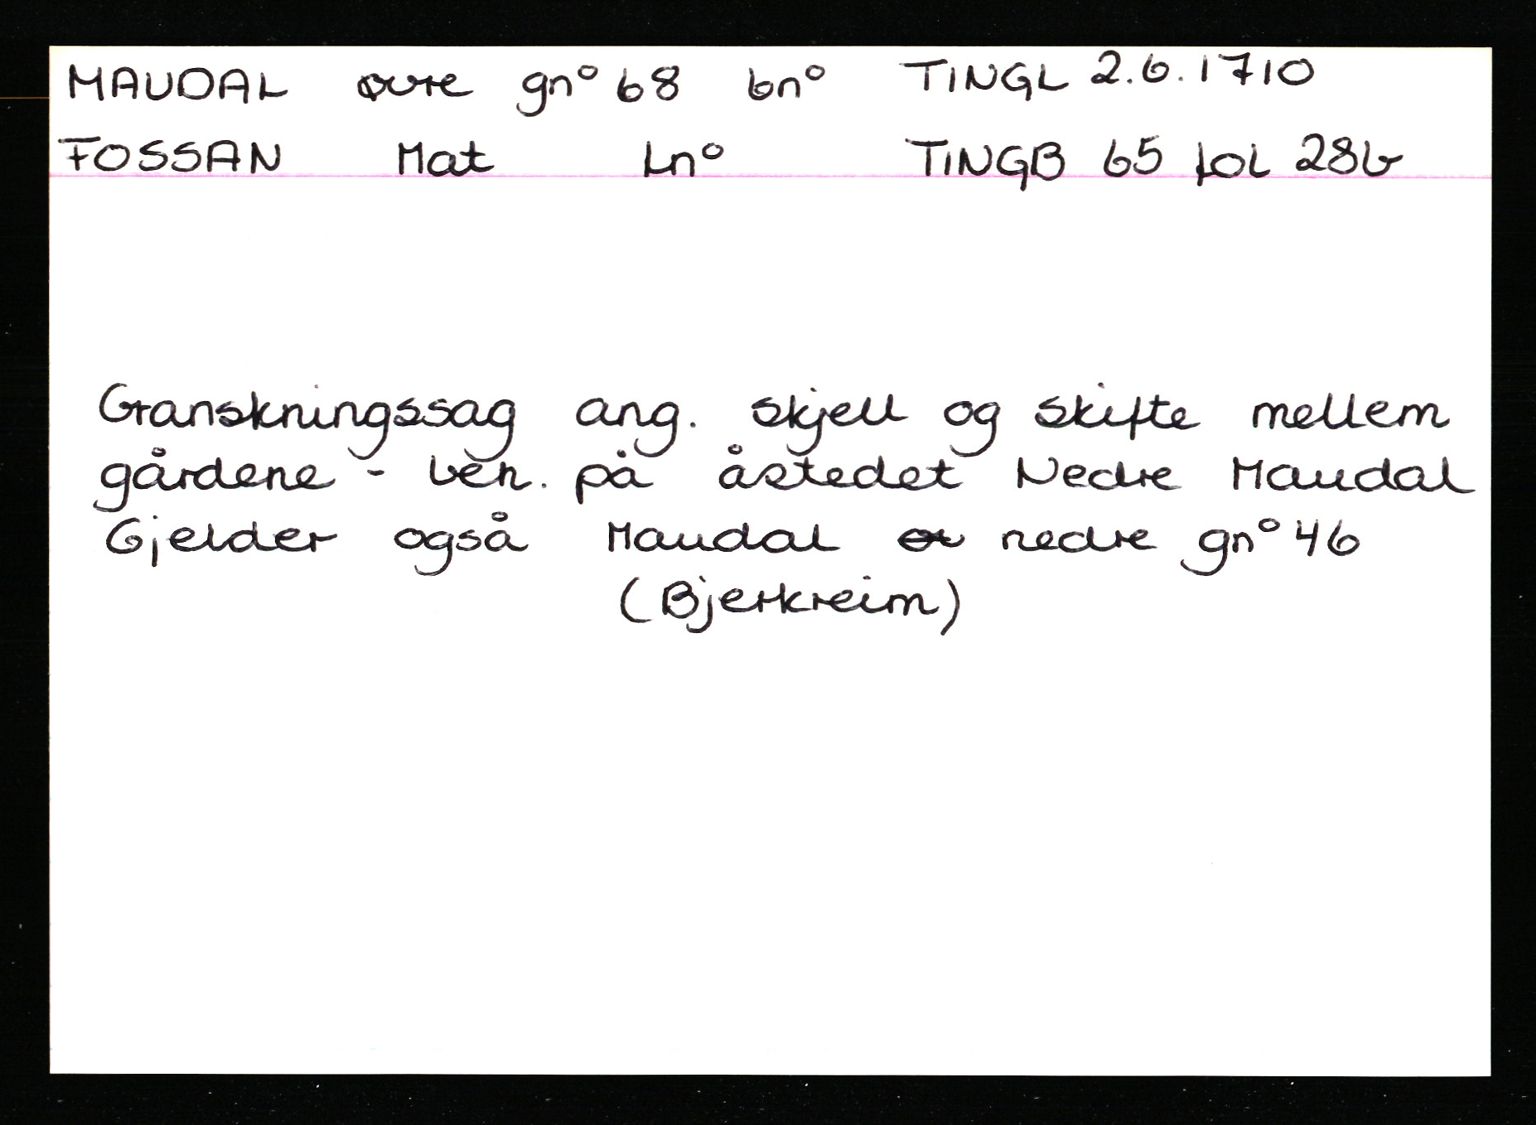 MAUDAL øvre gnº 68 bnº TINGL 2.6.1710
FOSSAN Mat Lnº TINGB 65 fol 28b
Granskningssag ang. skjell og skifte mellem
gårdene - ben. på åstedet Nedre Maudal
Gjelder også Maudal nedre gnº 46
(Bjerkreim)